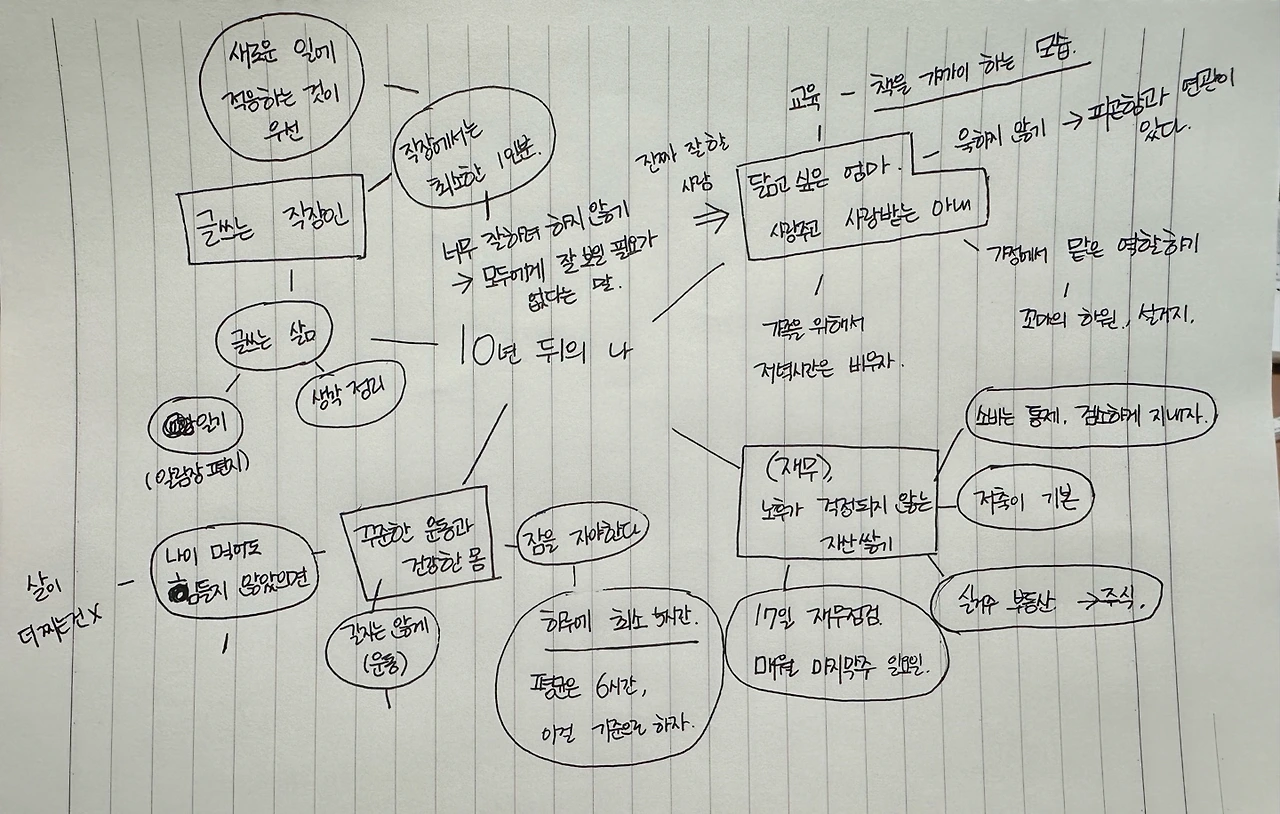 새로운 일에
적응하는 것이
우선
직장에서는
최소한 1인분.
글쓰는 직장인
너무 잘하려 하지 않기
→ 모두에게 잘 보일 필요가
없다는 말.
글쓰는 삶
생각 정리
일기
(알람장 편지)
10년 뒤의 나
진짜 잘할
사람
⇒
교육 - 책을 가까이 하는 모습.
닮고 싶은 엄마.
사랑주고 사랑받는 아내
욱하지 않기 → 피곤함과 연관이
있다.
가정에서 맡은 역할하기
꼬마의 하원, 설거지.
가족을 위해서
저녁시간은 비우자.
꾸준한 운동과
건강한 몸
나이 먹어도
힘들지 않았으면
살이
더 찌는건 X
길지는 않게
(운동)
잠을 자야한다
하루에 최소 5시간.
평균은 6시간,
이걸 기준으로 하자.
(재무),
노후가 걱정되지 않는
자산쌓기
소비는 통제, 검소하게 지내자.
저축이 기본
실거주 부동산 → 주식.
17일 재무점검.
매월 마지막주 일요일.